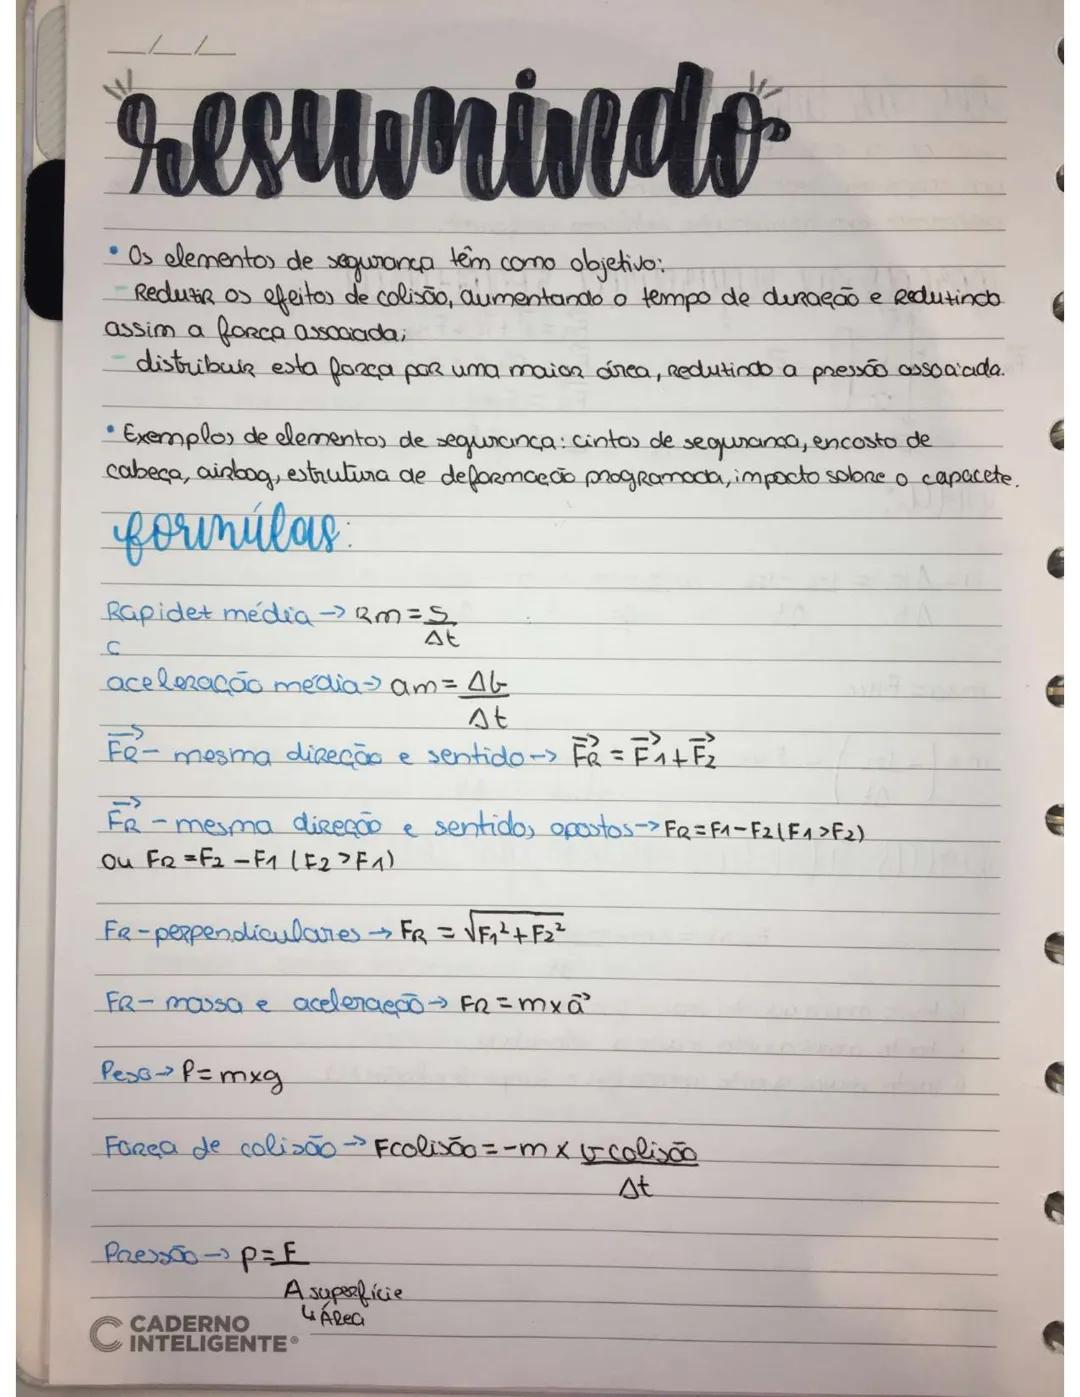 __/__/__
resumindo
• Os elementos de segurança têm como objetivo:
- Reduzir os efeitos de colisão, aumentando o tempo de duração e Reduzindo
assim a força associada;
- distribuir esta força por uma maior área, reduzindo a pressão associada.
• Exemplos de elementos de segurança: cintos de segurança, encosto de
cabeça, airbag, estrutura de deformação programada, impacto sobre o capacete.
formúlas:
Rapidez média → Rm = S
Δt
C
aceleração média → am = Δv
Δt
F⃗R - mesma direção e sentido → F⃗R = F⃗1 + F⃗2
F⃗R - mesma direção e sentidos opostos → FR = F1 - F2 (F1 > F2)
ou FR = F2 - F1 (F2 > F1)
FR - perpendiculares → FR = √F1² + F2²
FR - massa e aceleração → FR = m x a⃗
Peso → P = mxg
Força de colisão → Fcolisão = -m x v colisão
Δt
Pressão → p = F
A superfície
↳ Área
CADERNO
INTELIGENTE®